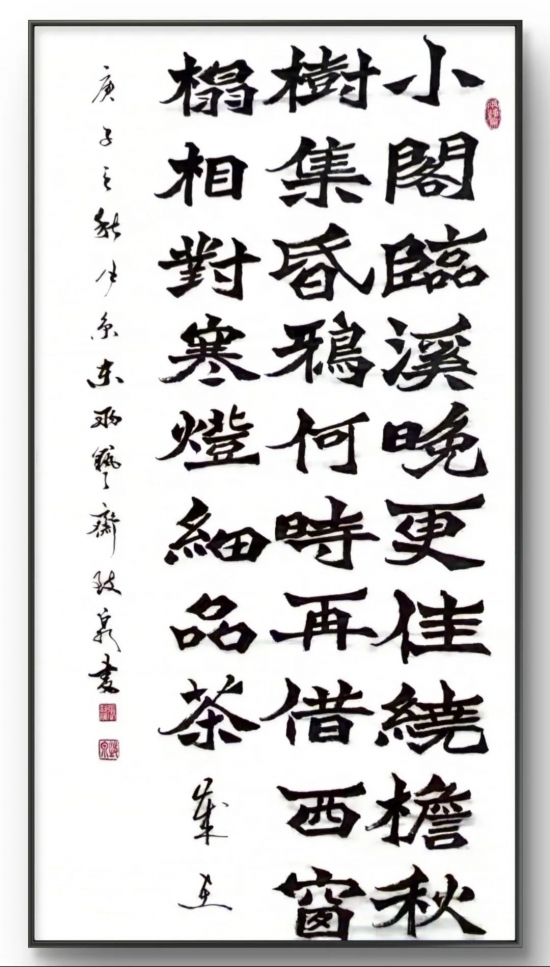 小閣臨溪晚更佳繞檐秋
樹集昏鴉何時再借西窗
榻相對寒燈細品茶 歲在
庚子之秋於京東雨藝齋致泉書